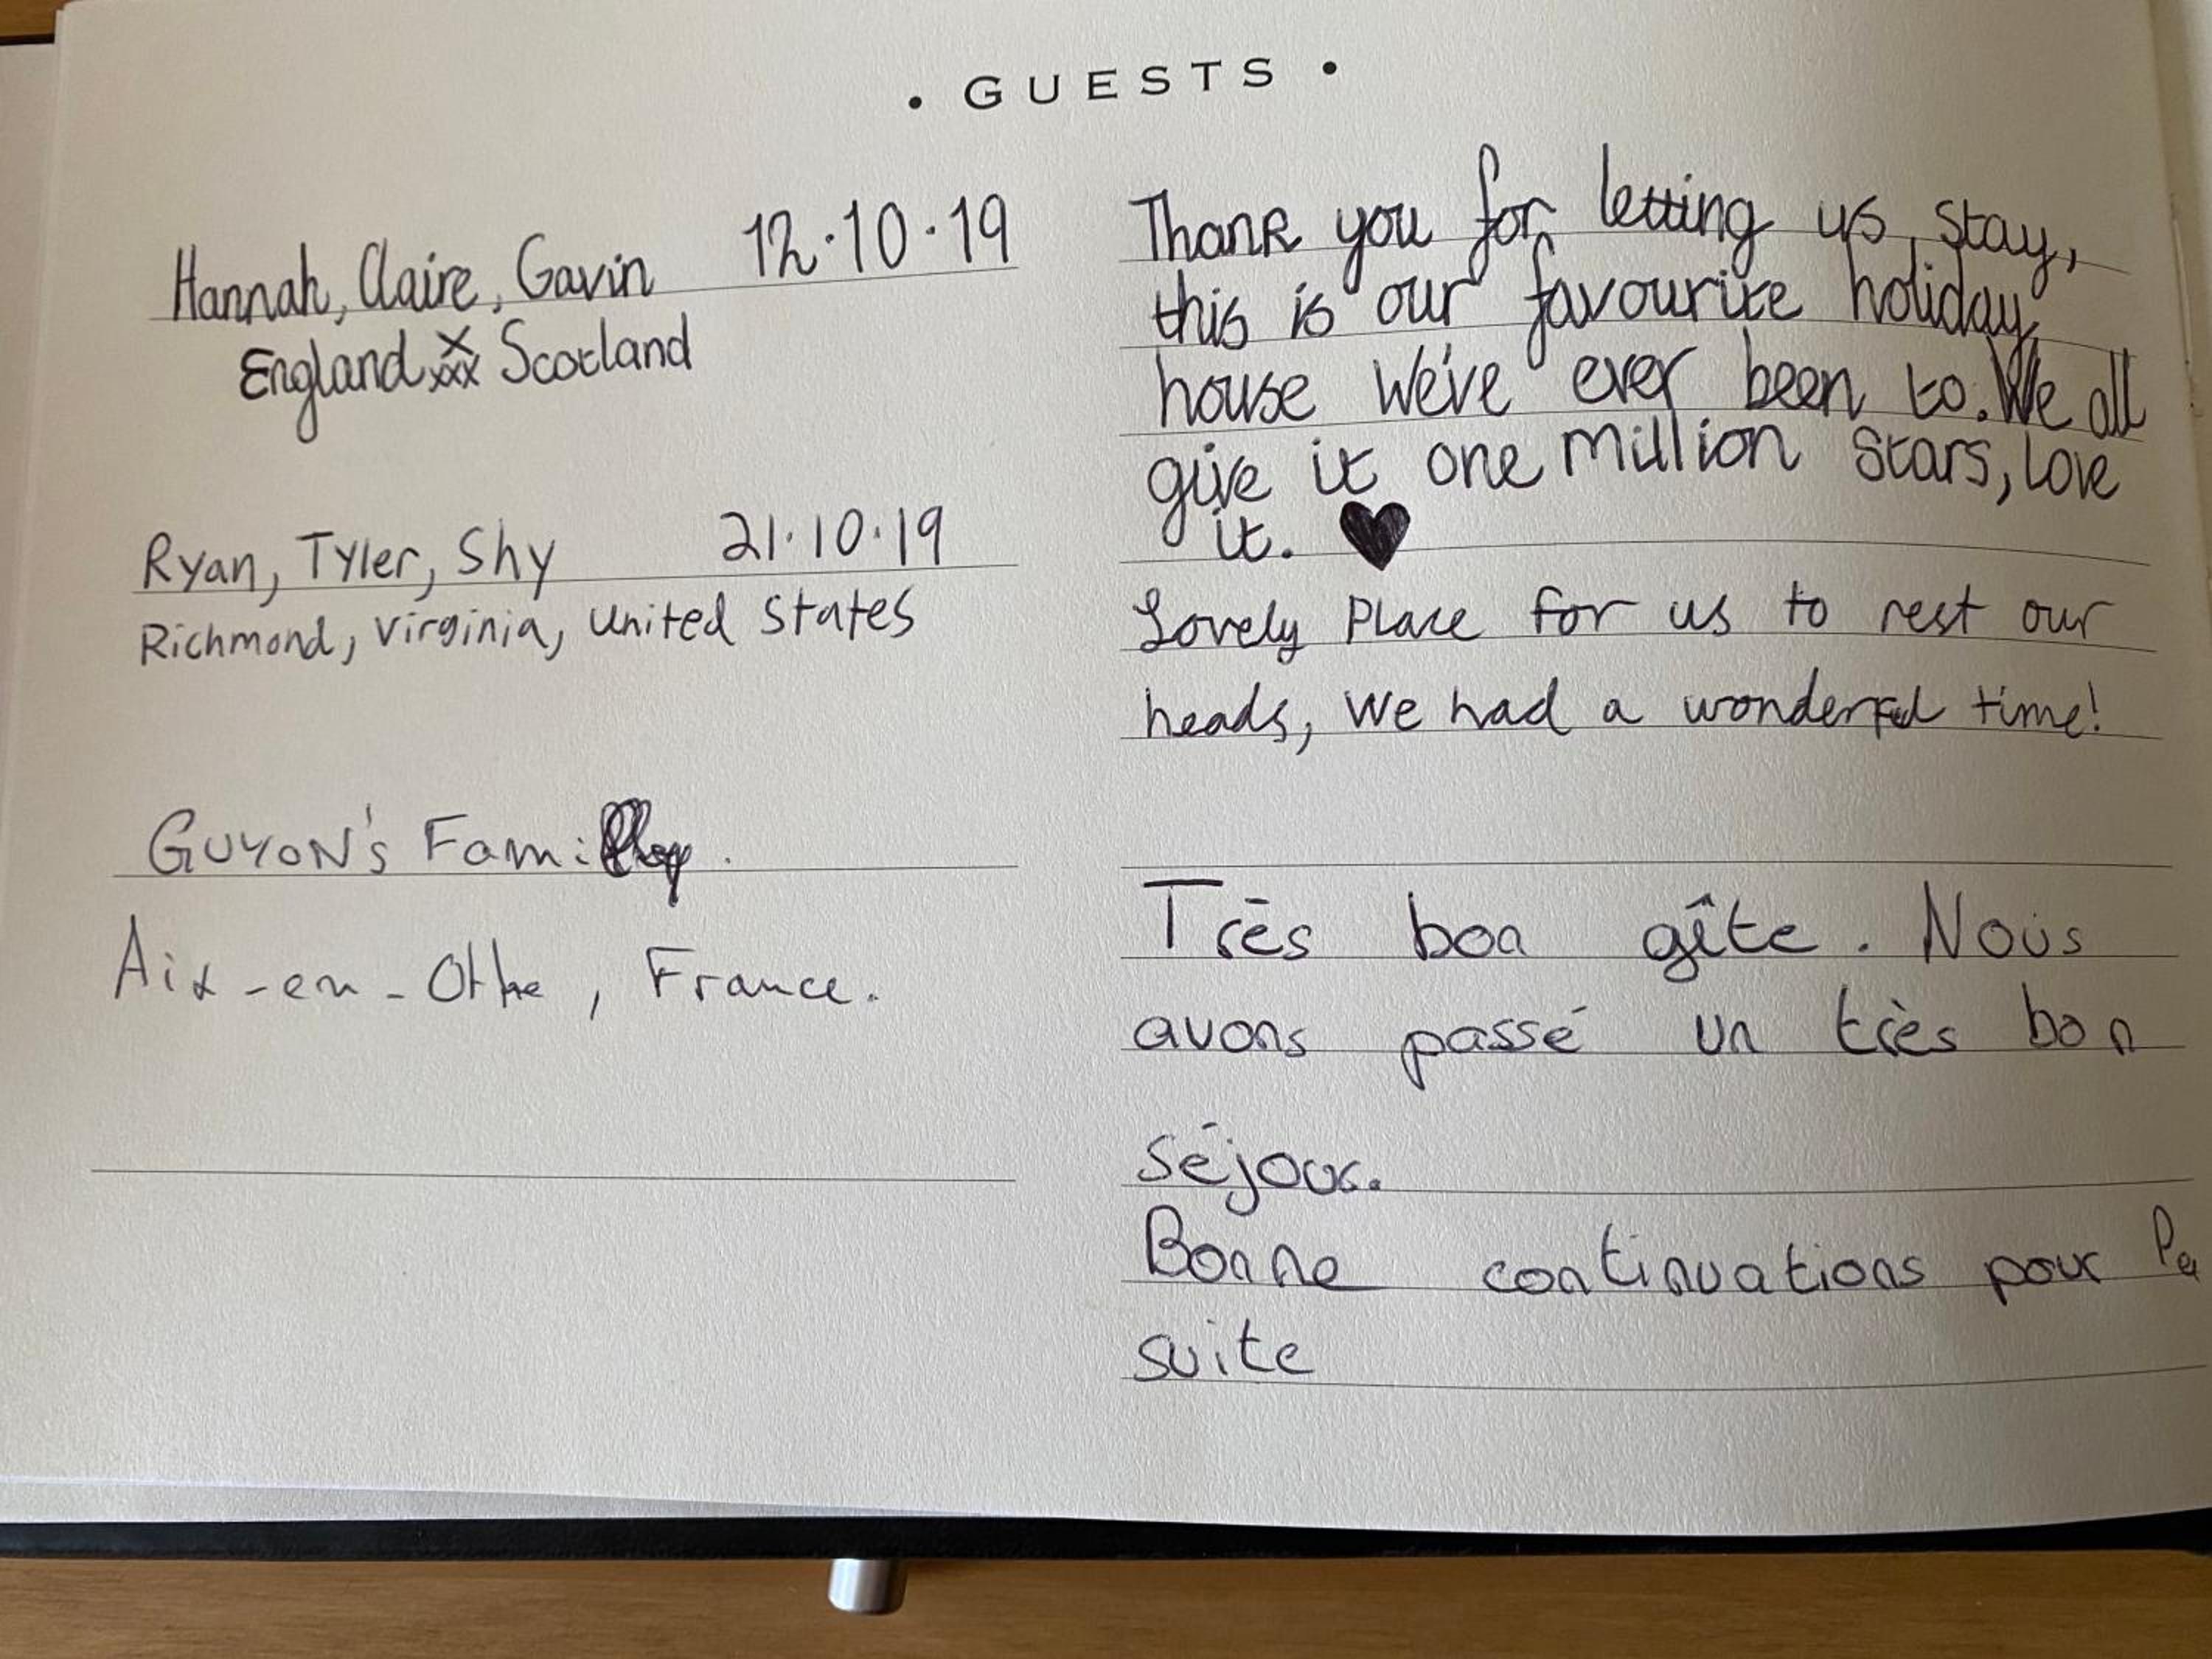 • GUESTS •
Hannah, Claire, Gavin 12.10.19
England xxxx Scotland
Thank you for letting us stay,
this is our favourite holiday
house we've ever been to. We all
give it one million stars, love
it. ♥
Ryan, Tyler, Shy 21.10.19
Richmond, Virginia, United States
Lovely Place for us to rest our
heads, we had a wonderful time!
GUYON's Family.
Aix-en-Othe, France.
Très bon gîte. Nous
avons passé un très bon
séjour.
Bonne continuations pour la
suite